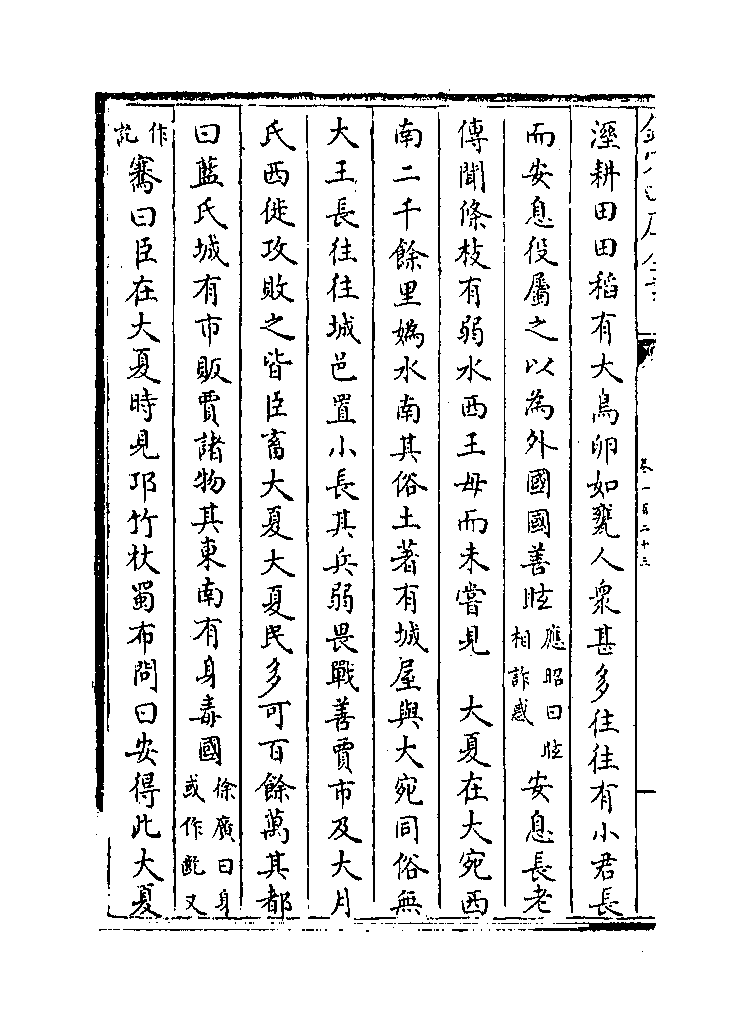 溼耕田田稻有大鳥卵如甕人衆甚多往往有小君長
而安息役屬之以為外國國善眩應昭曰眩相詐惑安息長老
傳聞條枝有弱水西王母而未嘗見　大夏在大宛西
南二千餘里媯水南其俗土著有城屋與大宛同俗無
大王長往往城邑置小長其兵弱畏戰善賈市及大月
氏西徙攻敗之皆臣畜大夏大夏民多可百餘萬其都
曰藍氏城有市販賈諸物其東南有身毒國徐廣曰身或作乾又
作訖騫曰臣在大夏時見邛竹杖蜀布問曰安得此大夏
卷一百二十三